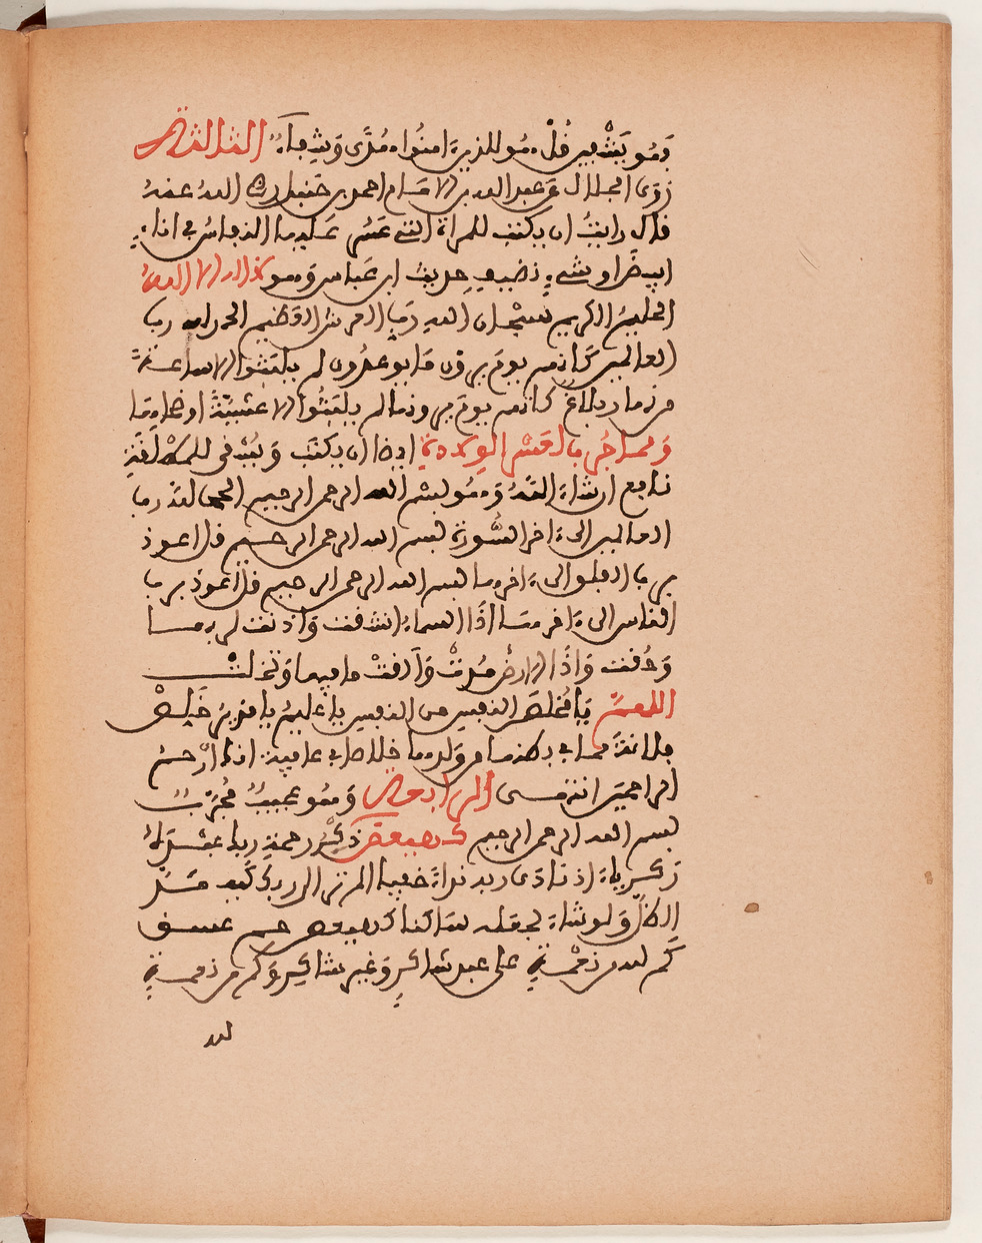 فهو يشفين قل هو للذين ءامنوا هدى وشفاء الثالثة
روى الخلال عن عبد الله بن الامام احمد بن حنبل رضي الله عنه
قال رايت ابي يكتب للمراة التي عسر عليها النفاس في اناء
ابيض او شيء نضيف حديث ابن عباس وهو لا اله الا الله
الحليم الكريم سبحان الله رب العرش العظيم الحمد لله رب
العالمين كانهم يوم يرون ما يوعدون لم يلبثوا الا ساعة
من نهار بلاغ كانهم يوم يرونها لم يلبثوا الا عشية او ضحاها
ومما جرب لعسر الولادة ايضا ان يكتب ويسقى للمطلقة
نافع ان شاء الله وهو بسم الله الرحمن الرحيم الحمد لله رب
العالمين الى ءاخر السورة بسم الله الرحمن الرحيم قل اعوذ
برب الفلق الى ءاخرها بسم الله الرحمن الرحيم قل اعوذ برب
الناس الى ءاخرها اذا السماء انشقت واذنت لربها
وحقت واذا الارض مدت وألقت ما فيها وتخلت
اللهم يا مخلص النفس من النفس يا عليم يا عزيز خلص
فلانة مما في بطنها من ولدها خلاصا في عافية انك ارحم
الراحمين انتهى الرابعة وهو عجيب مجرب
بسم الله الرحمن الرحيم كهيعص ذكر رحمة ربك عبده
زكرياء اذ نادى ربه نداء خفيا الم تر الى ربك كيف مد
الظل ولو شاء لجعله ساكنا كهيعص حم عسق
كم لله من نعمة على عبد شاكر وغير شاكر وكم من نعمة
لله